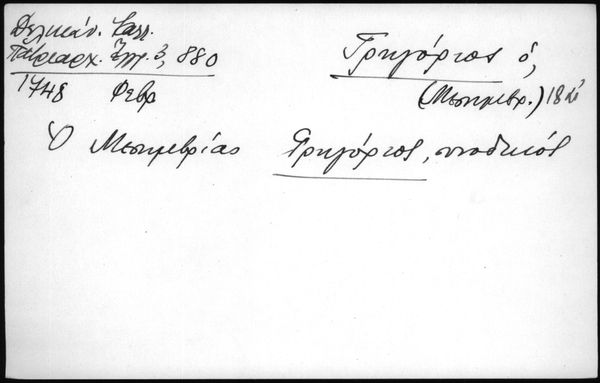 Δελικάν. Καλλ.
Πατριαρχ. Ἔγγρ. 3, 880
1748 Φεβρ
Γρηγόριος ὁ,
(Μεσημβρ.) 18
Ὁ Μεσημβρίας Γρηγόριος, συνοδικός